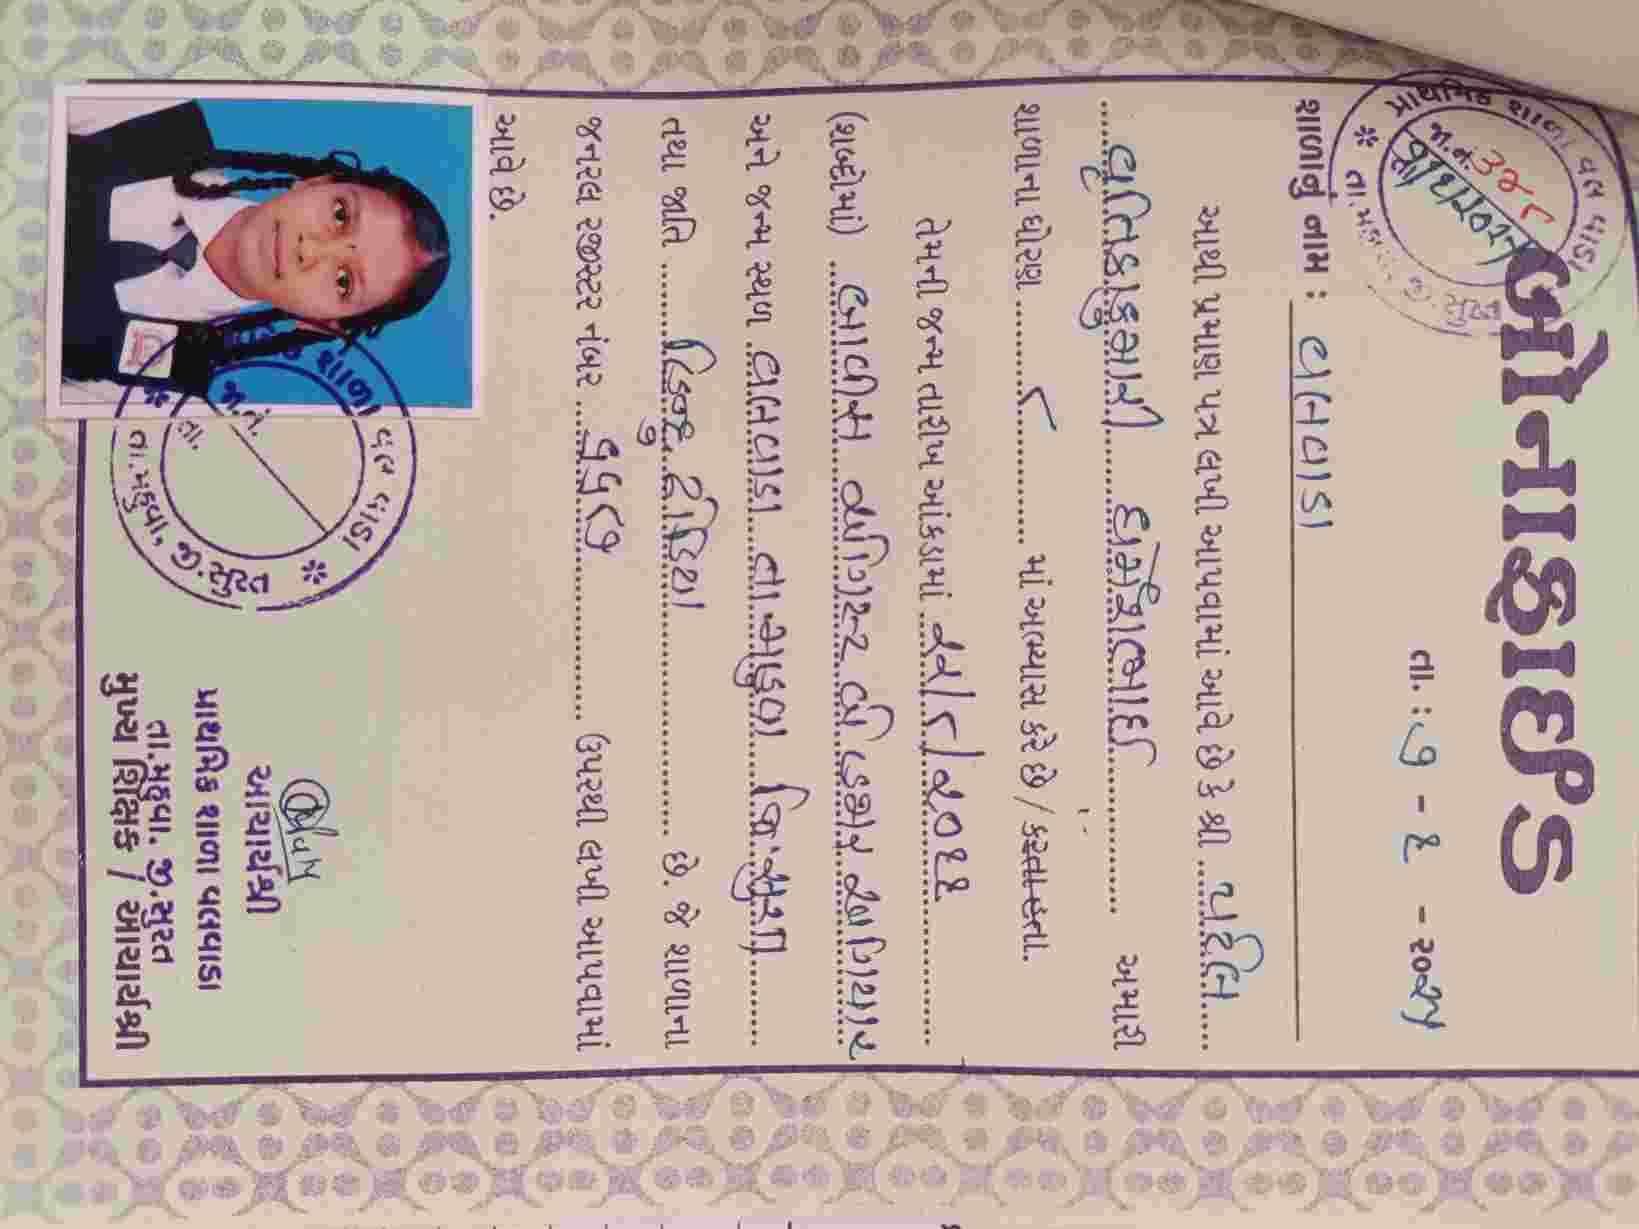 બોનાફાઈડ
પ્રાથમિક શાળા વલવાડા
જા.નં. ૩૨૮
તા. ૧/૬/૨૦૨૫
તા. : ૧ - ૬ - ૨૦૨૫
શાળાનું નામ : વલવાડા
આથી પ્રમાણ પત્ર લખી આપવામાં આવે છે કે શ્રી ..... પટેલ .....
..... ધૃતિકાકુમારી ..... ધર્મેશભાઈ ..... અમારી
શાળાના ધોરણ ..... ૮ ..... માં અભ્યાસ કરે છે / કરતા હતા.
તેમની જન્મ તારીખ આંકડામાં ..... ૨૨/૮/૨૦૧૧ .....
(શબ્દોમાં) ..... બાવીસ ઓગષ્ટ બે હજાર અગિયાર
અને જન્મ સ્થળ વલવાડા તા મહુવા જિ. સુરત .....
તથા જાતિ ..... હિન્દુ ઢોડિયા ..... છે. જે શાળાના
જનરલ રજીસ્ટર નંબર ..... ૫૫૮૭ ..... ઉપરથી લખી આપવામાં
આવે છે.
શાળા વલવાડા
જા.નં.
તા.
તા.મહુવા જી.સુરત
આચાર્યશ્રી
પ્રાથમિક શાળા વલવાડા
તા.મહુવા. જી.સુરત
મુખ્ય શિક્ષક / આચાર્યશ્રી